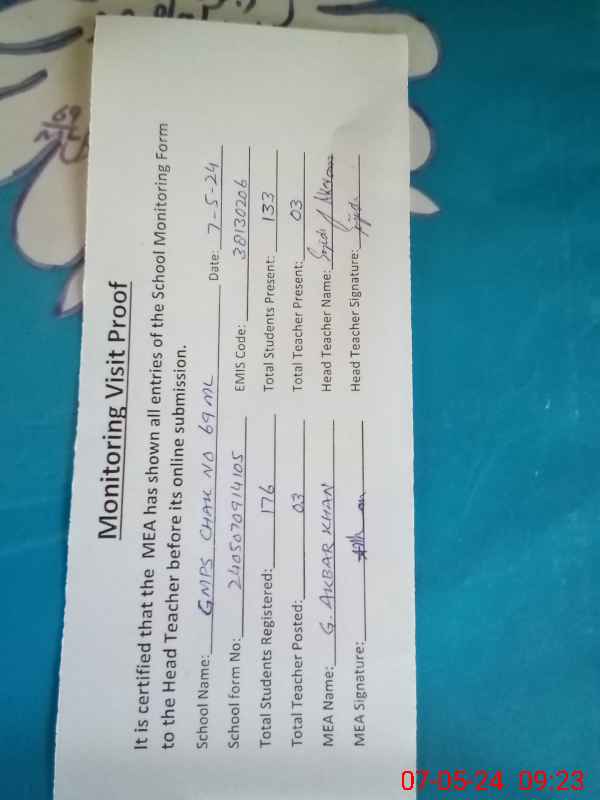 Monitoring Visit Proof
It is certified that the MEA has shown all entries of the School Monitoring Form
to the Head Teacher before its online submission.
School Name: GMPS CHAK NO 69 ML Date: 7-5-24
School form No: 2405070914105 EMIS Code: 38130206
Total Students Registered: 176 Total Students Present: 133
Total Teacher Posted: 03 Total Teacher Present: 03
MEA Name: G. AKBAR KHAN Head Teacher Name:
MEA Signature: Head Teacher Signature:
69
07-05-24 09:23